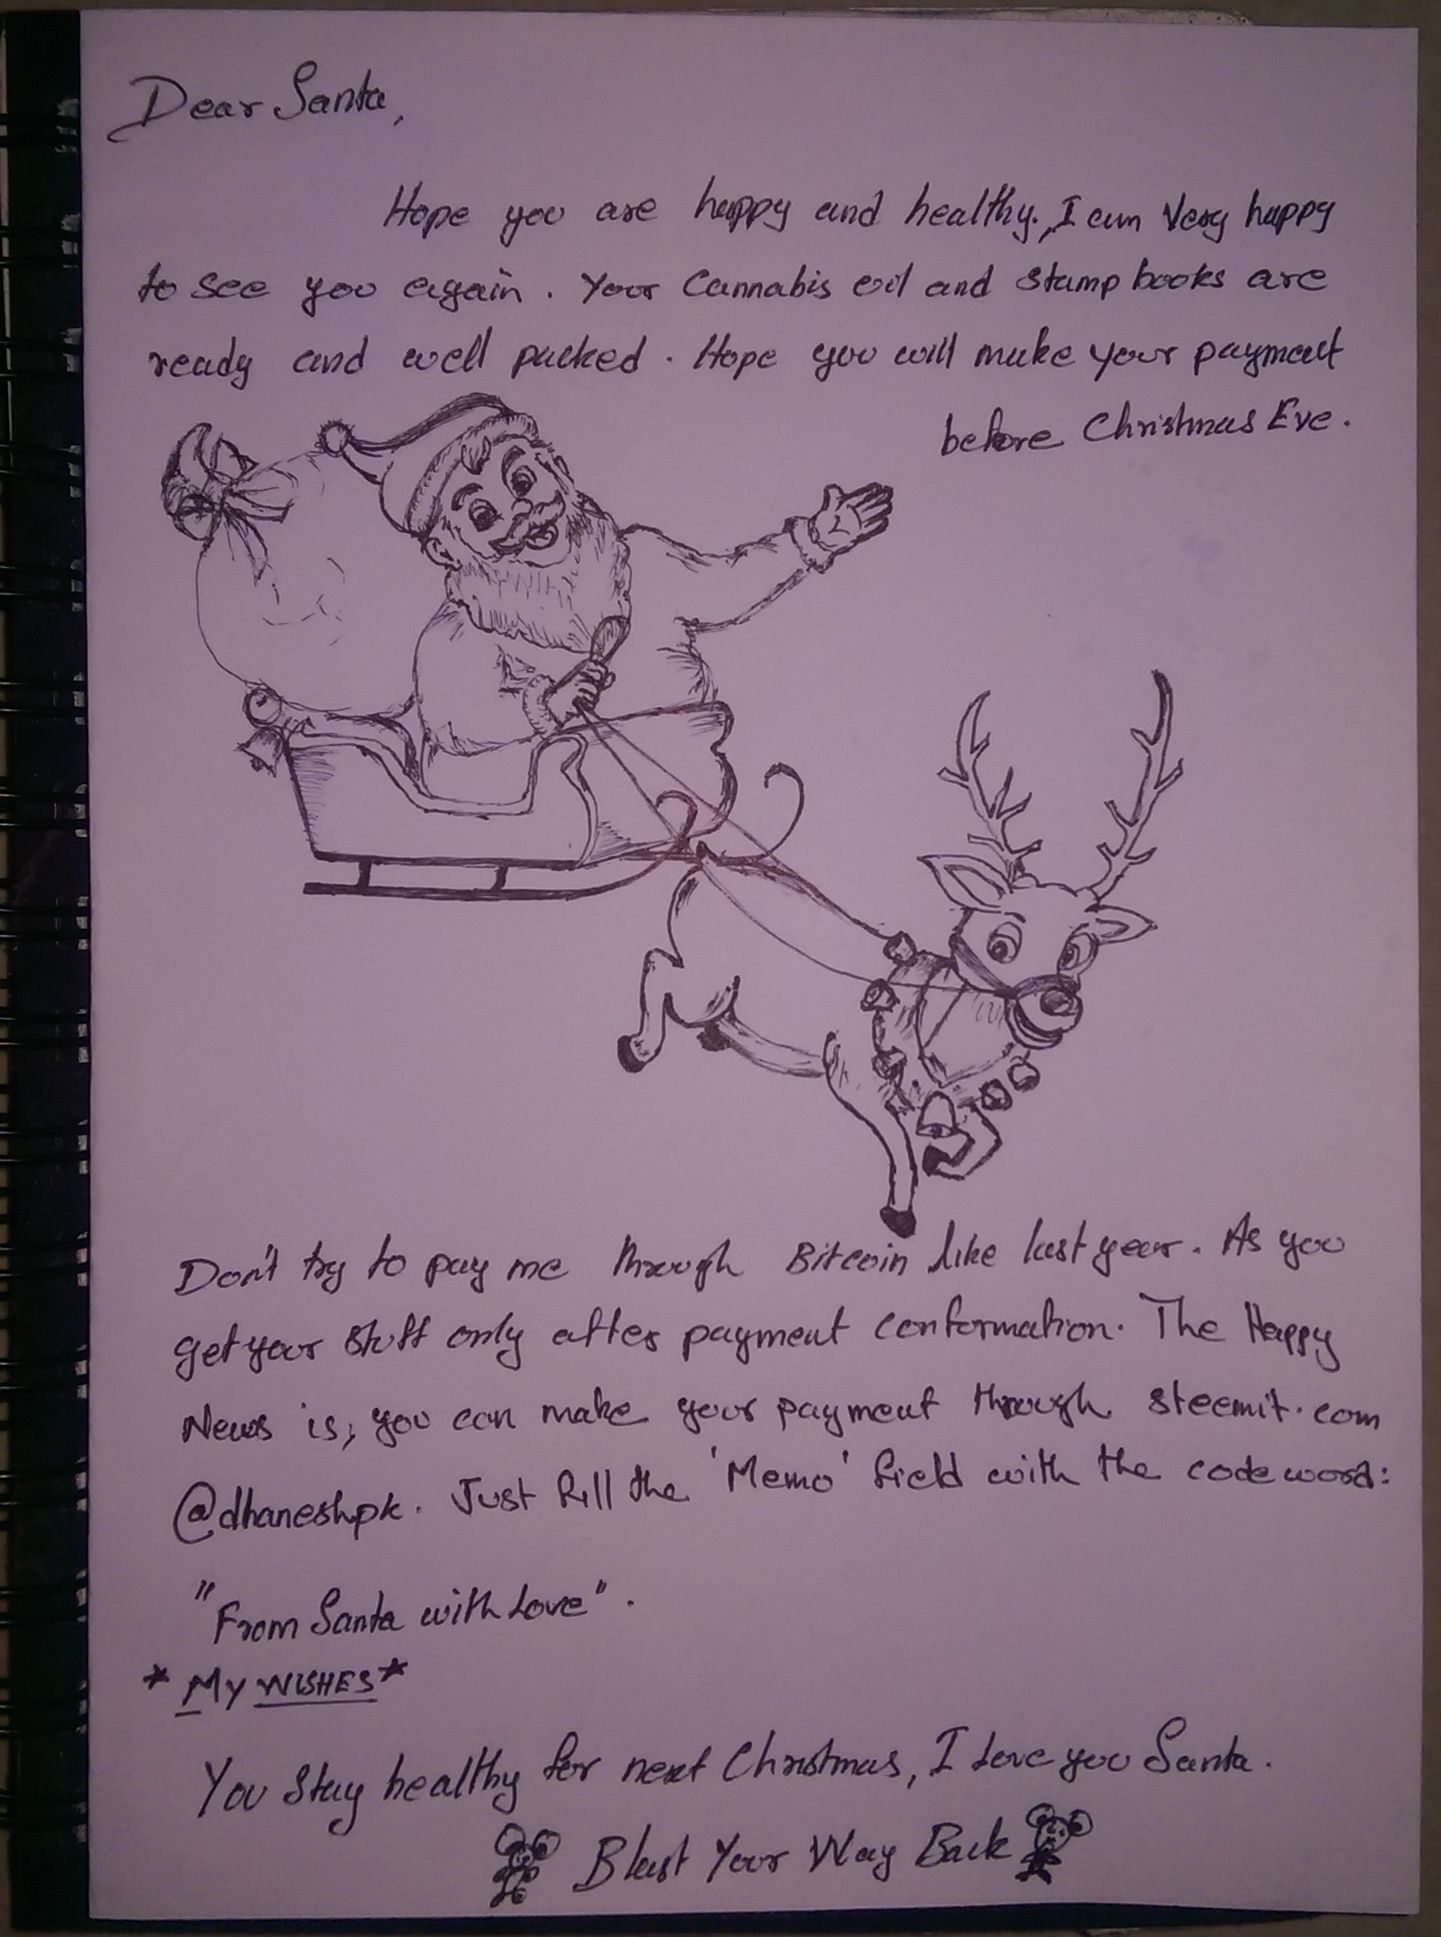 Dear Santa,
Hope you are happy and healthy. I am Very happy
to see you again. Your Cannabis oil and stamp books are
ready and well packed. Hope you will make your payment
before Christmas Eve.
Don't try to pay me through Bitcoin like last year. As you
get your stuff only after payment conformation. The Happy
News is, you can make your payment through steemit.com
@dhaneshpk. Just fill the 'Memo' field with the code word:
"From Santa with Love".
* MY WISHES *
You stay healthy for next Christmas, I Love you Santa.
Blast Your Way Back